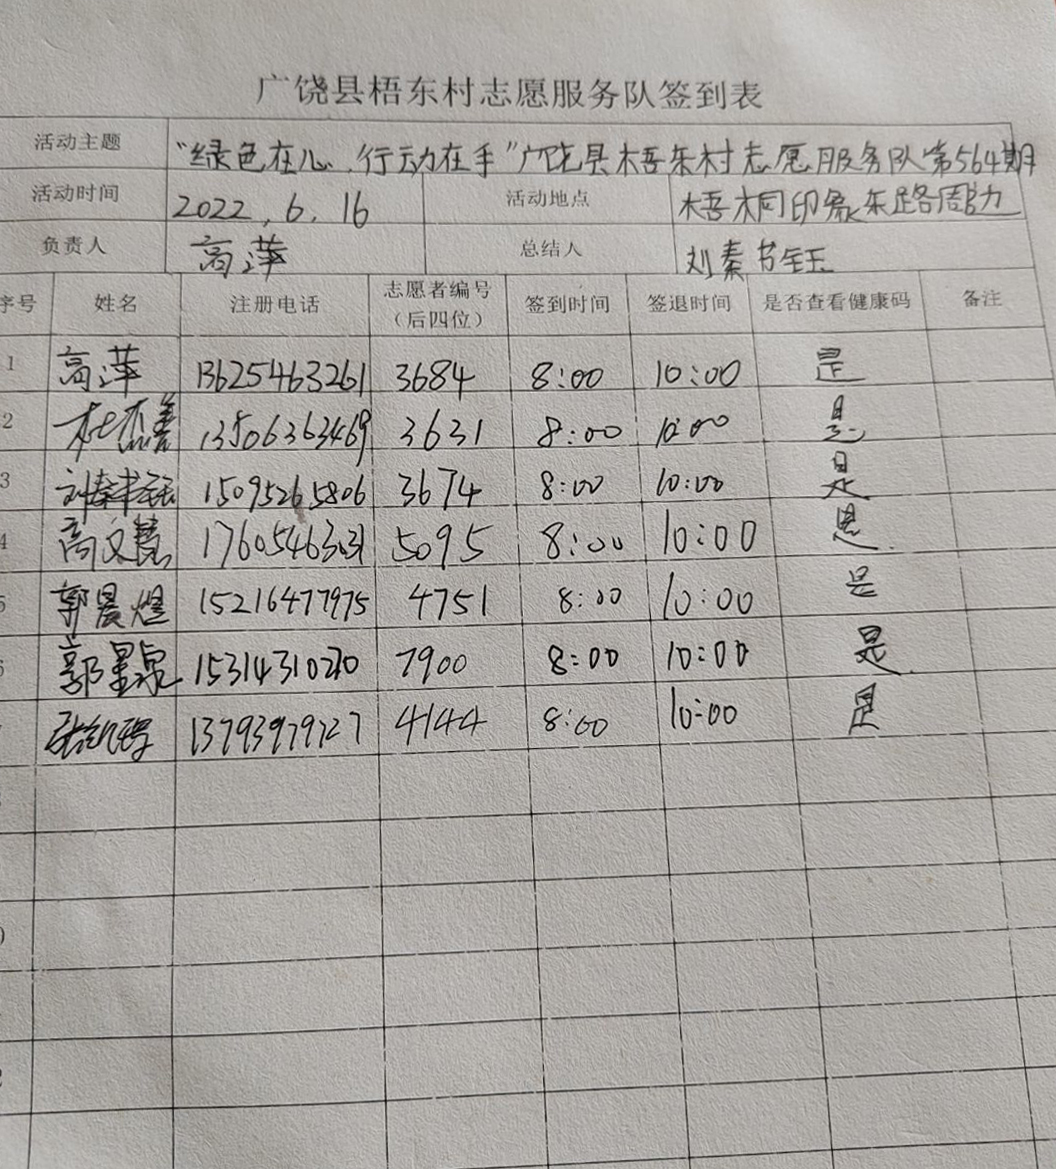 广饶县梧东村志愿服务队签到表
活动主题 “绿色在心、行动在手”广饶县梧东村志愿服务队第564期
活动时间 2022,6,16 活动地点 梧桐印象东路周边
负责人 高萍 总结人 刘秦书钰
序号 姓名 注册电话 志愿者编号（后四位） 签到时间 签退时间 是否查看健康码 备注
1 高萍 13625463261 3684 8:00 10:00 是
2 杜杰善 13506363469 3631 8:00 10:00 是
3 刘秦书钰 15095265806 3674 8:00 10:00 是
4 高文慧 17605463031 5095 8:00 10:00 是
5 郭晨煜 15216477975 4751 8:00 10:00 是
6 郭星泉 15314310270 7900 8:00 10:00 是
7 13793979727 4144 8:00 10:00 是